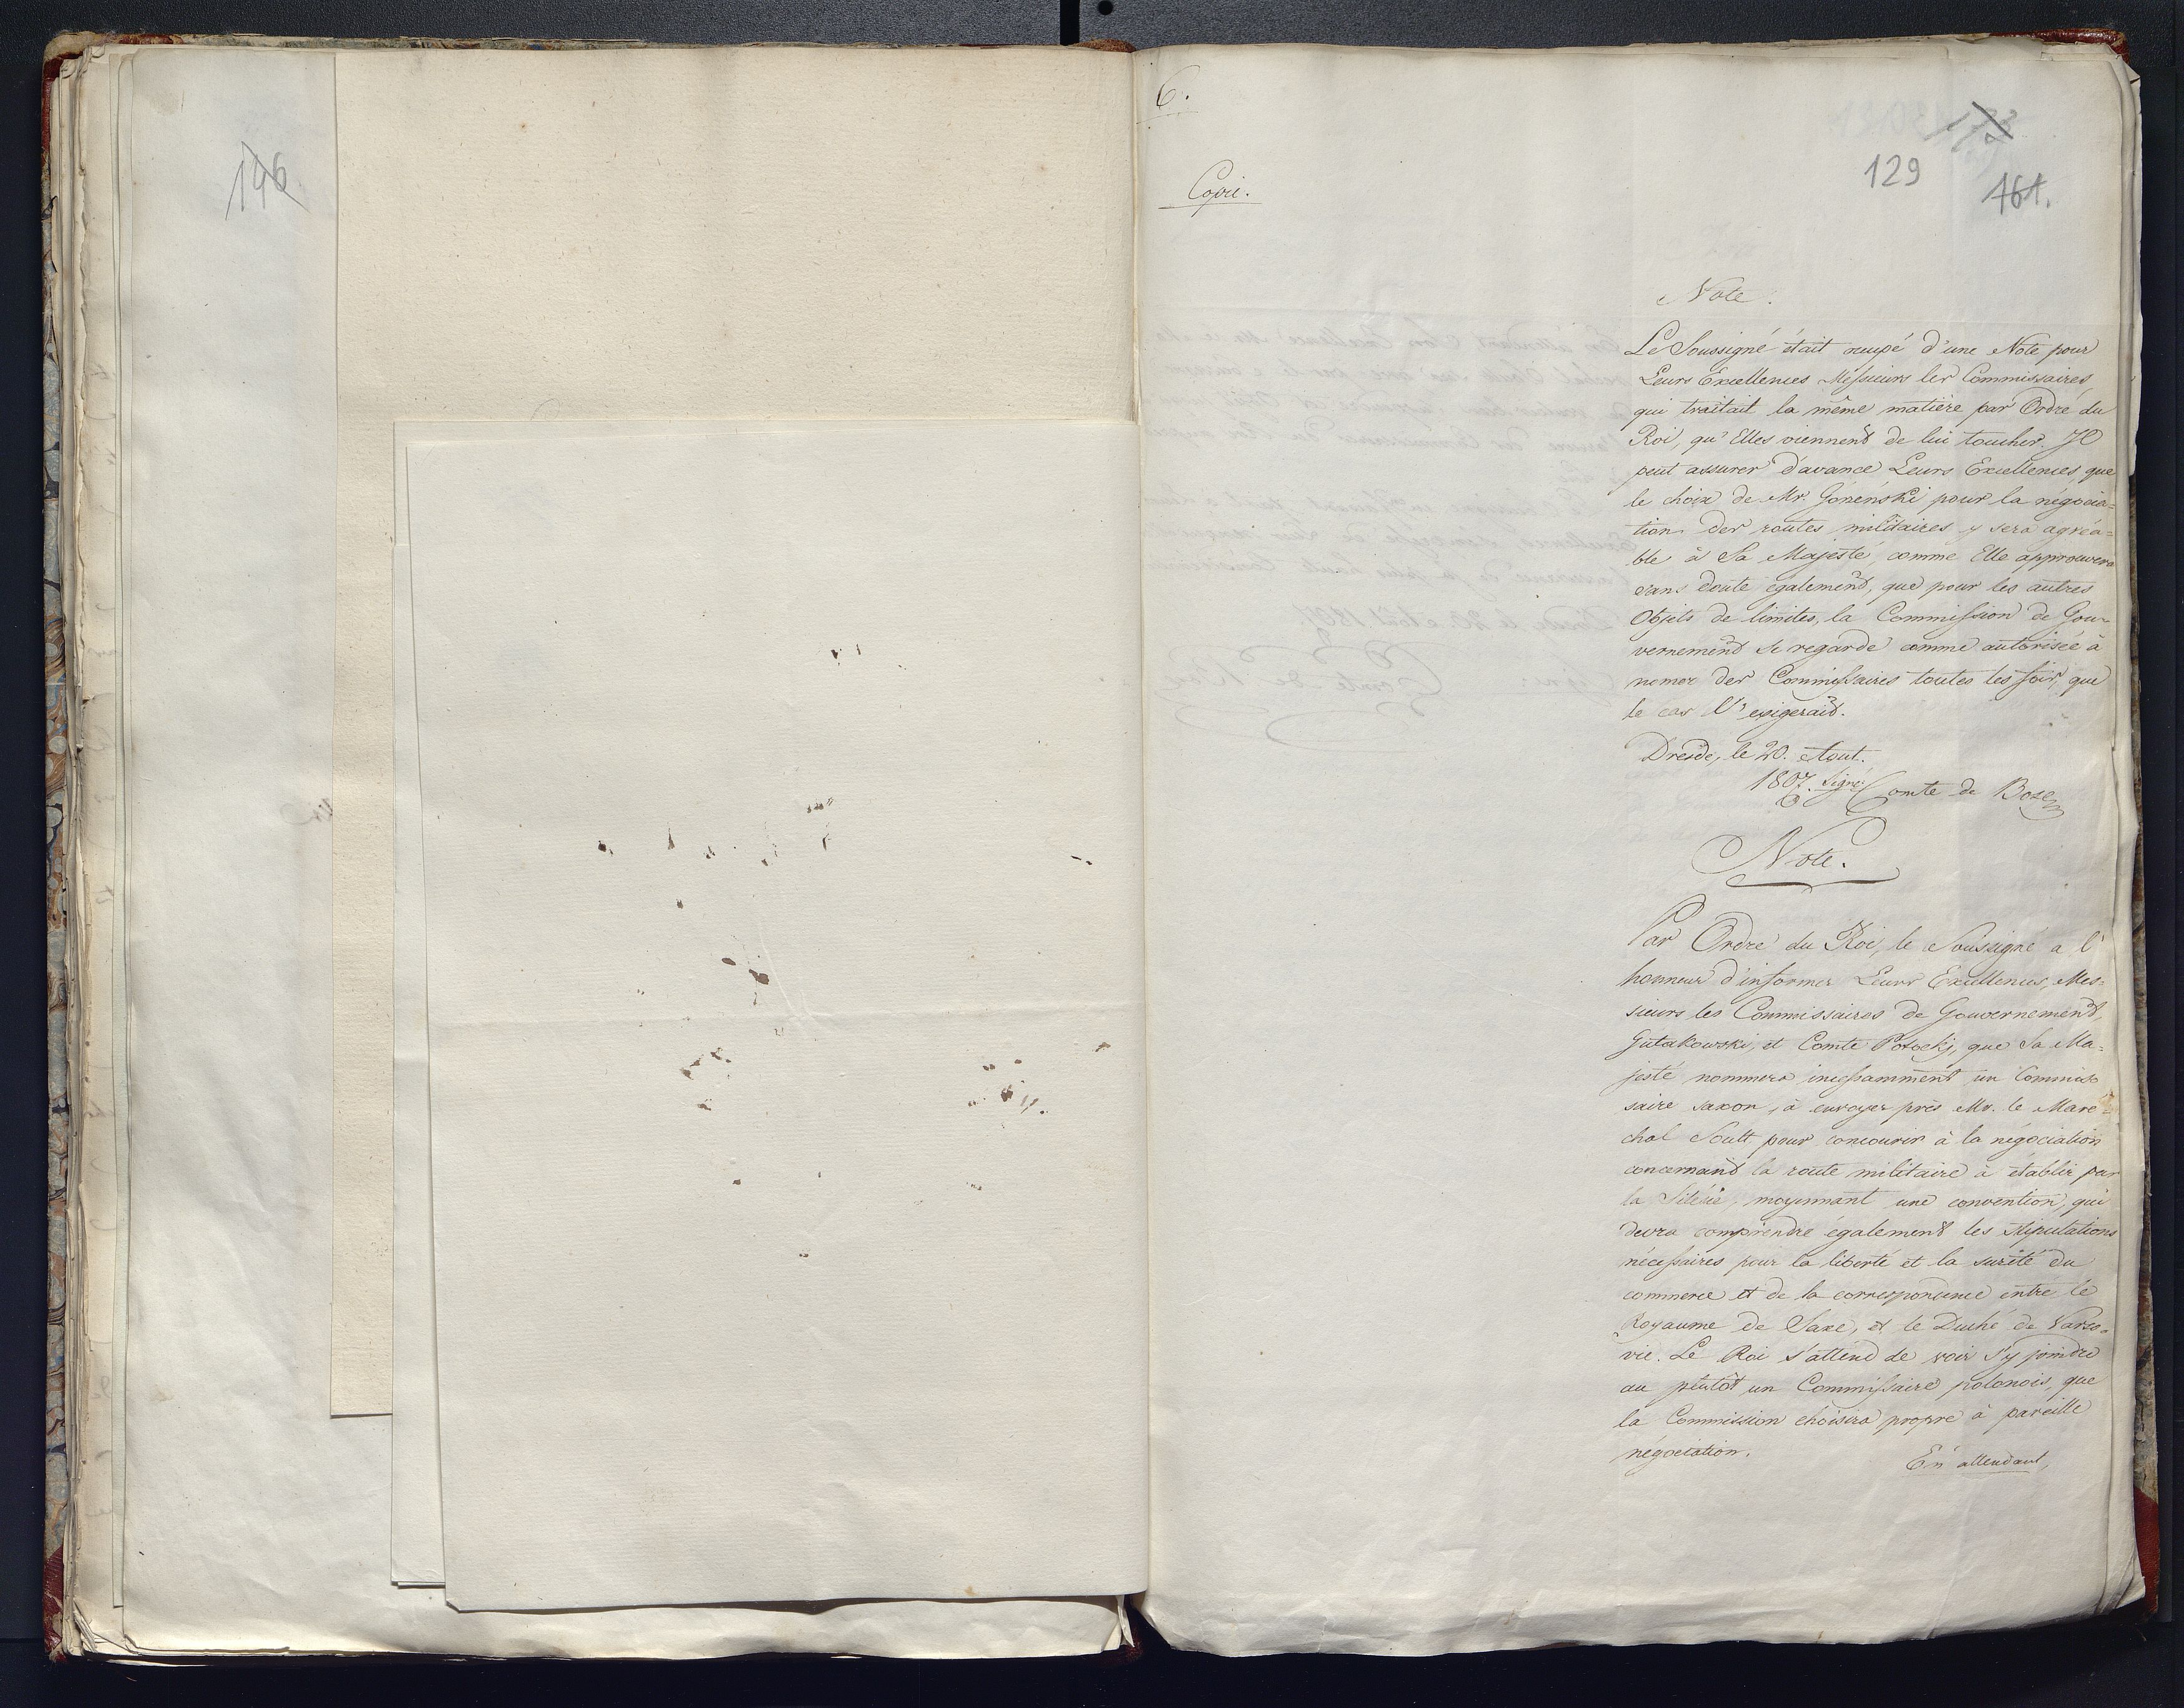 196
6.
173
129
161.
Copie.
Note.
Le Soussigné était occupé d'une Note pour
Leurs Excellences Messieurs les Commissaires,
qui traitait la même matière par Ordre du
Roi, qu'Elles viennent de lui toucher. Il
peut assurer d'avance Leurs Excellences que
le choix de Mr. Gorzeński pour la négocia=
tion des routes militaires y sera agréa=
ble à Sa Majesté, comme Elle approuvera
sans doute également, que pour les autres
Objets de limites, la Commission de Gou=
vernement se regarde comme autorisée à
nomer des Commissaires toutes les fois, que
le cas l'exigerait.
Dresde, le 20. Aout.
1807. signé Comte de Bose
Note.
Par Ordre du Roi, le Soussigné a l'
honneur d'informer Leurs Excellences, Mes=
sieurs les Commissaires de Gouvernement,
Gutakowski, et Comte Potocki, que Sa Ma=
jesté nommera incessamment un Commis
saire saxon, à envoyer près Mr. le Maré=
chal Soult pour concourir à la négociation
concernant la route militaire à établir par
la Silésie, moyennant une convention, qui
devra comprendre également les stipulations
nécessaires pour la liberté et la sureté du
commerce et de la correspondence entre le
Royaume de Saxe, et le Duché de Varso=
vie. Le Roi s'attend de voir s'y joindre
au plutôt un Commissaire polonois, que
la Commission choisira propre à pareille
négociation.
En attendant,